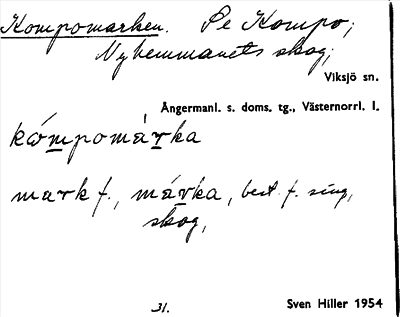 Kompomarken. Se Kompo;
Nyhemmanets skog;
Viksjö sn.
Ångermanl. s. doms. tg., Västernorrl. l.
kómpomárka
mark f., márka, best f. sing,
skog,
31.
Sven Hiller 1954